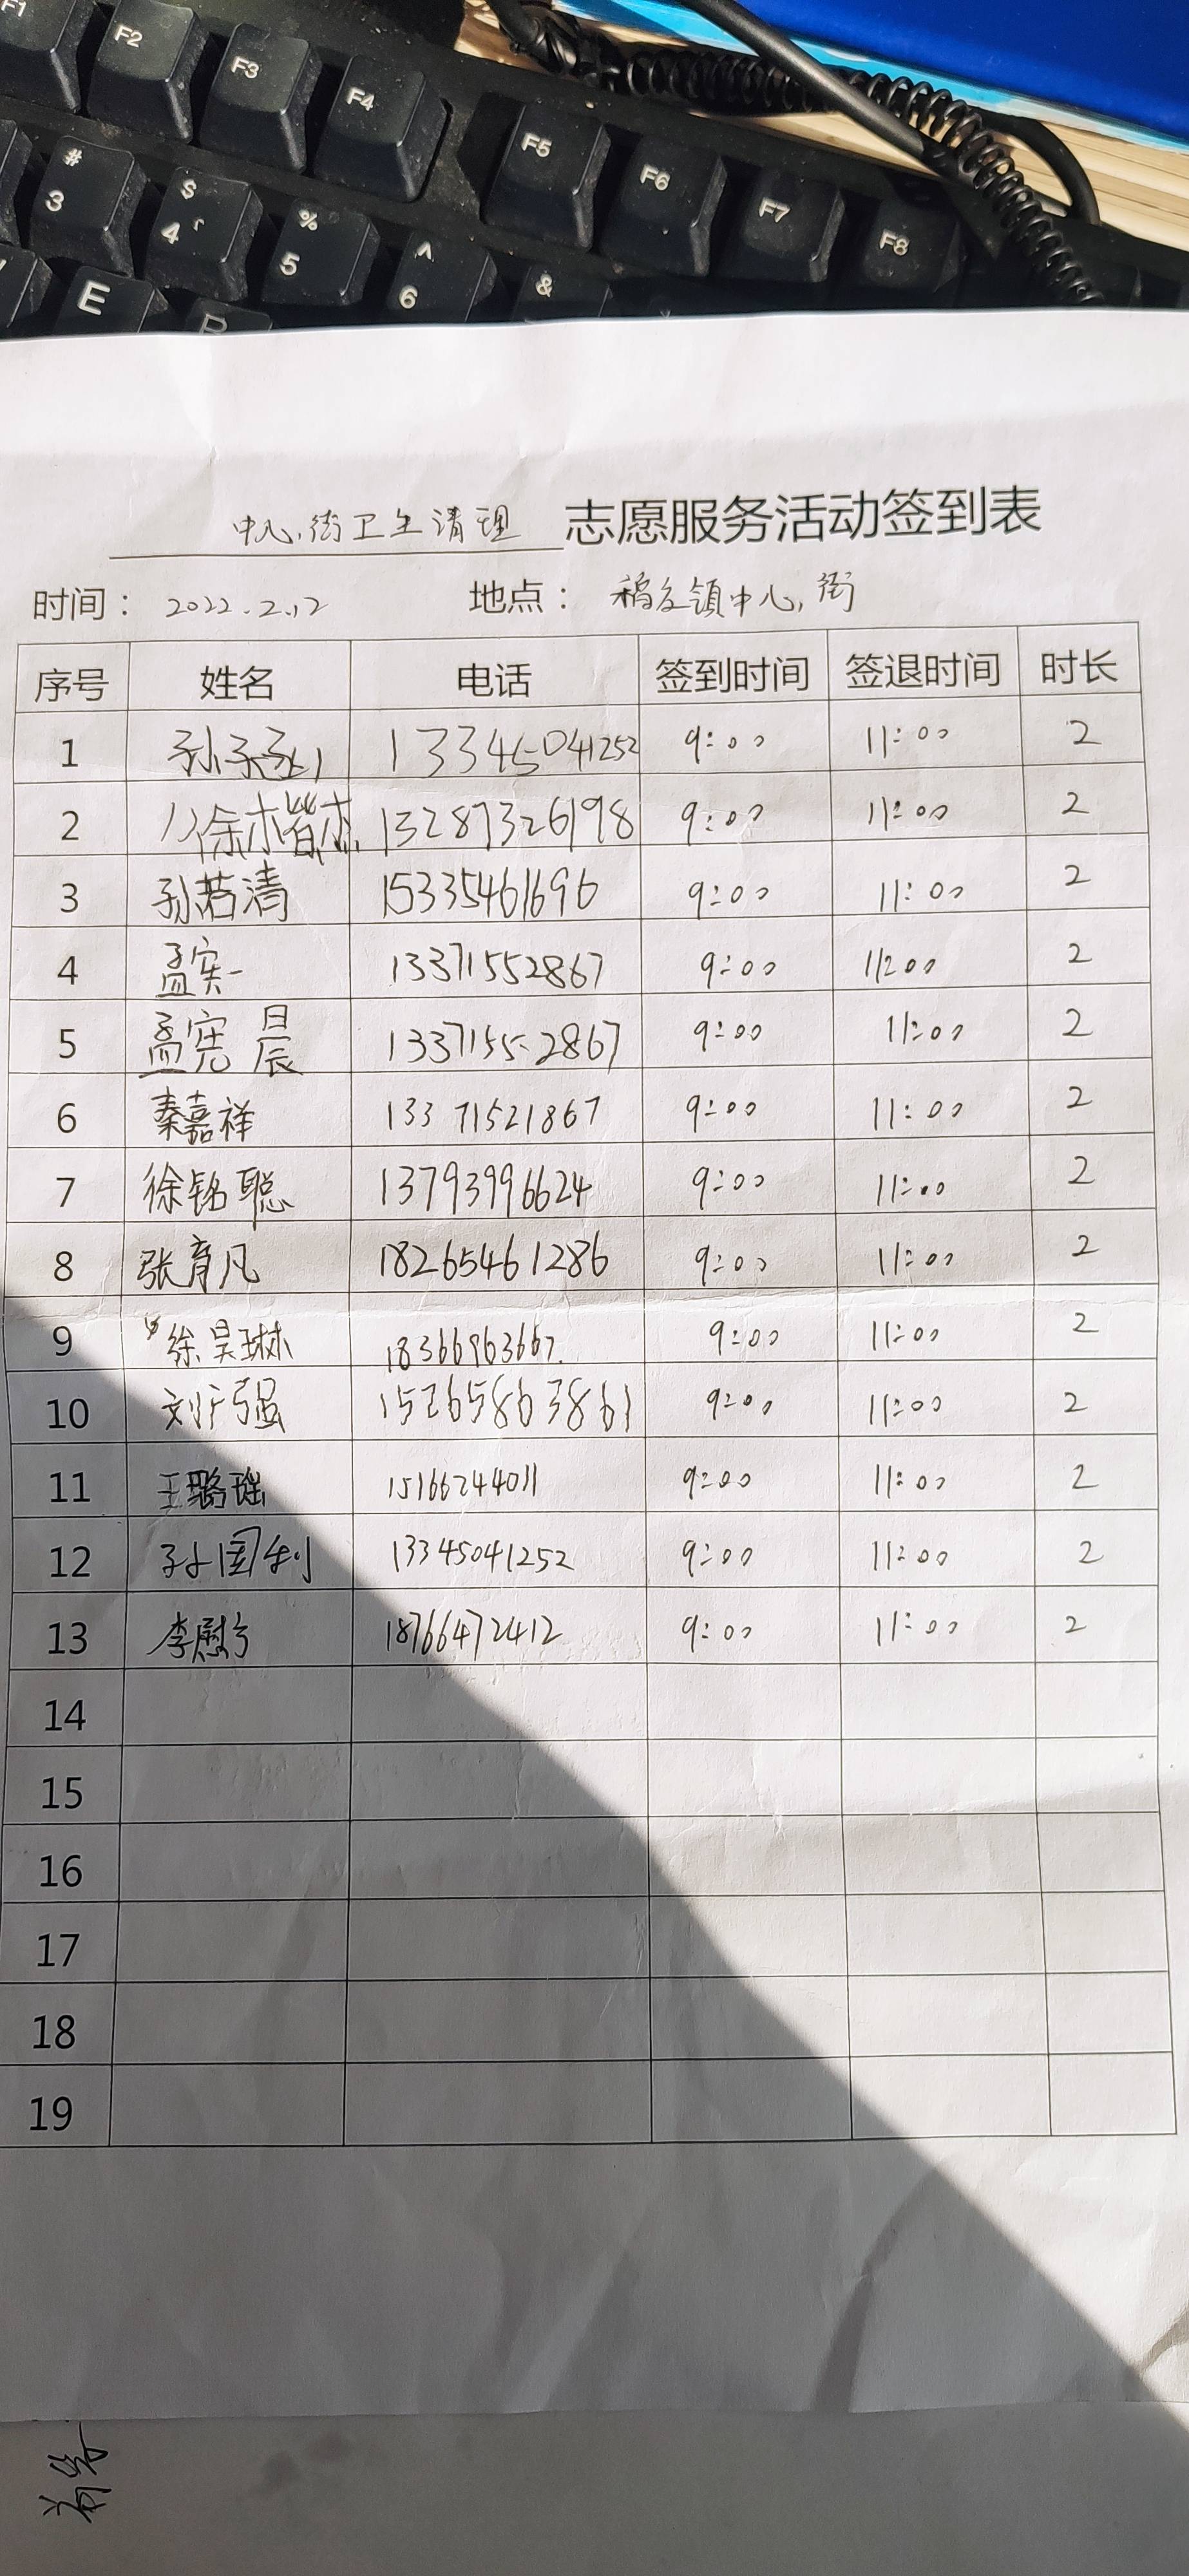 F1 F2 F3 F4 F5 F6 F7 F8
# 3 $ 4 % 5 ^ 6 &
E R
中心街卫生清理 志愿服务活动签到表
时间： 2022.2.12 地点： 稻庄镇中心街
序号 姓名 电话 签到时间 签退时间 时长
1 孙 13345041252 9:00 11:00 2
2 徐 13287326198 9:00 11:00 2
3 孙若清 15335461696 9:00 11:00 2
4 孟宪一 13371552867 9:00 11:00 2
5 孟宪晨 13371552867 9:00 11:00 2
6 秦嘉祥 13371521867 9:00 11:00 2
7 徐铭聪 13793996624 9:00 11:00 2
8 张育凡 18265461286 9:00 11:00 2
9 徐昊琳 18366963667. 9:00 11:00 2
10 刘广强 15265863861 9:00 11:00 2
11 王璐瑶 15166244011 9:00 11:00 2
12 孙国利 13345041252 9:00 11:00 2
13 李 18766472412 9:00 11:00 2
14
15
16
17
18
19